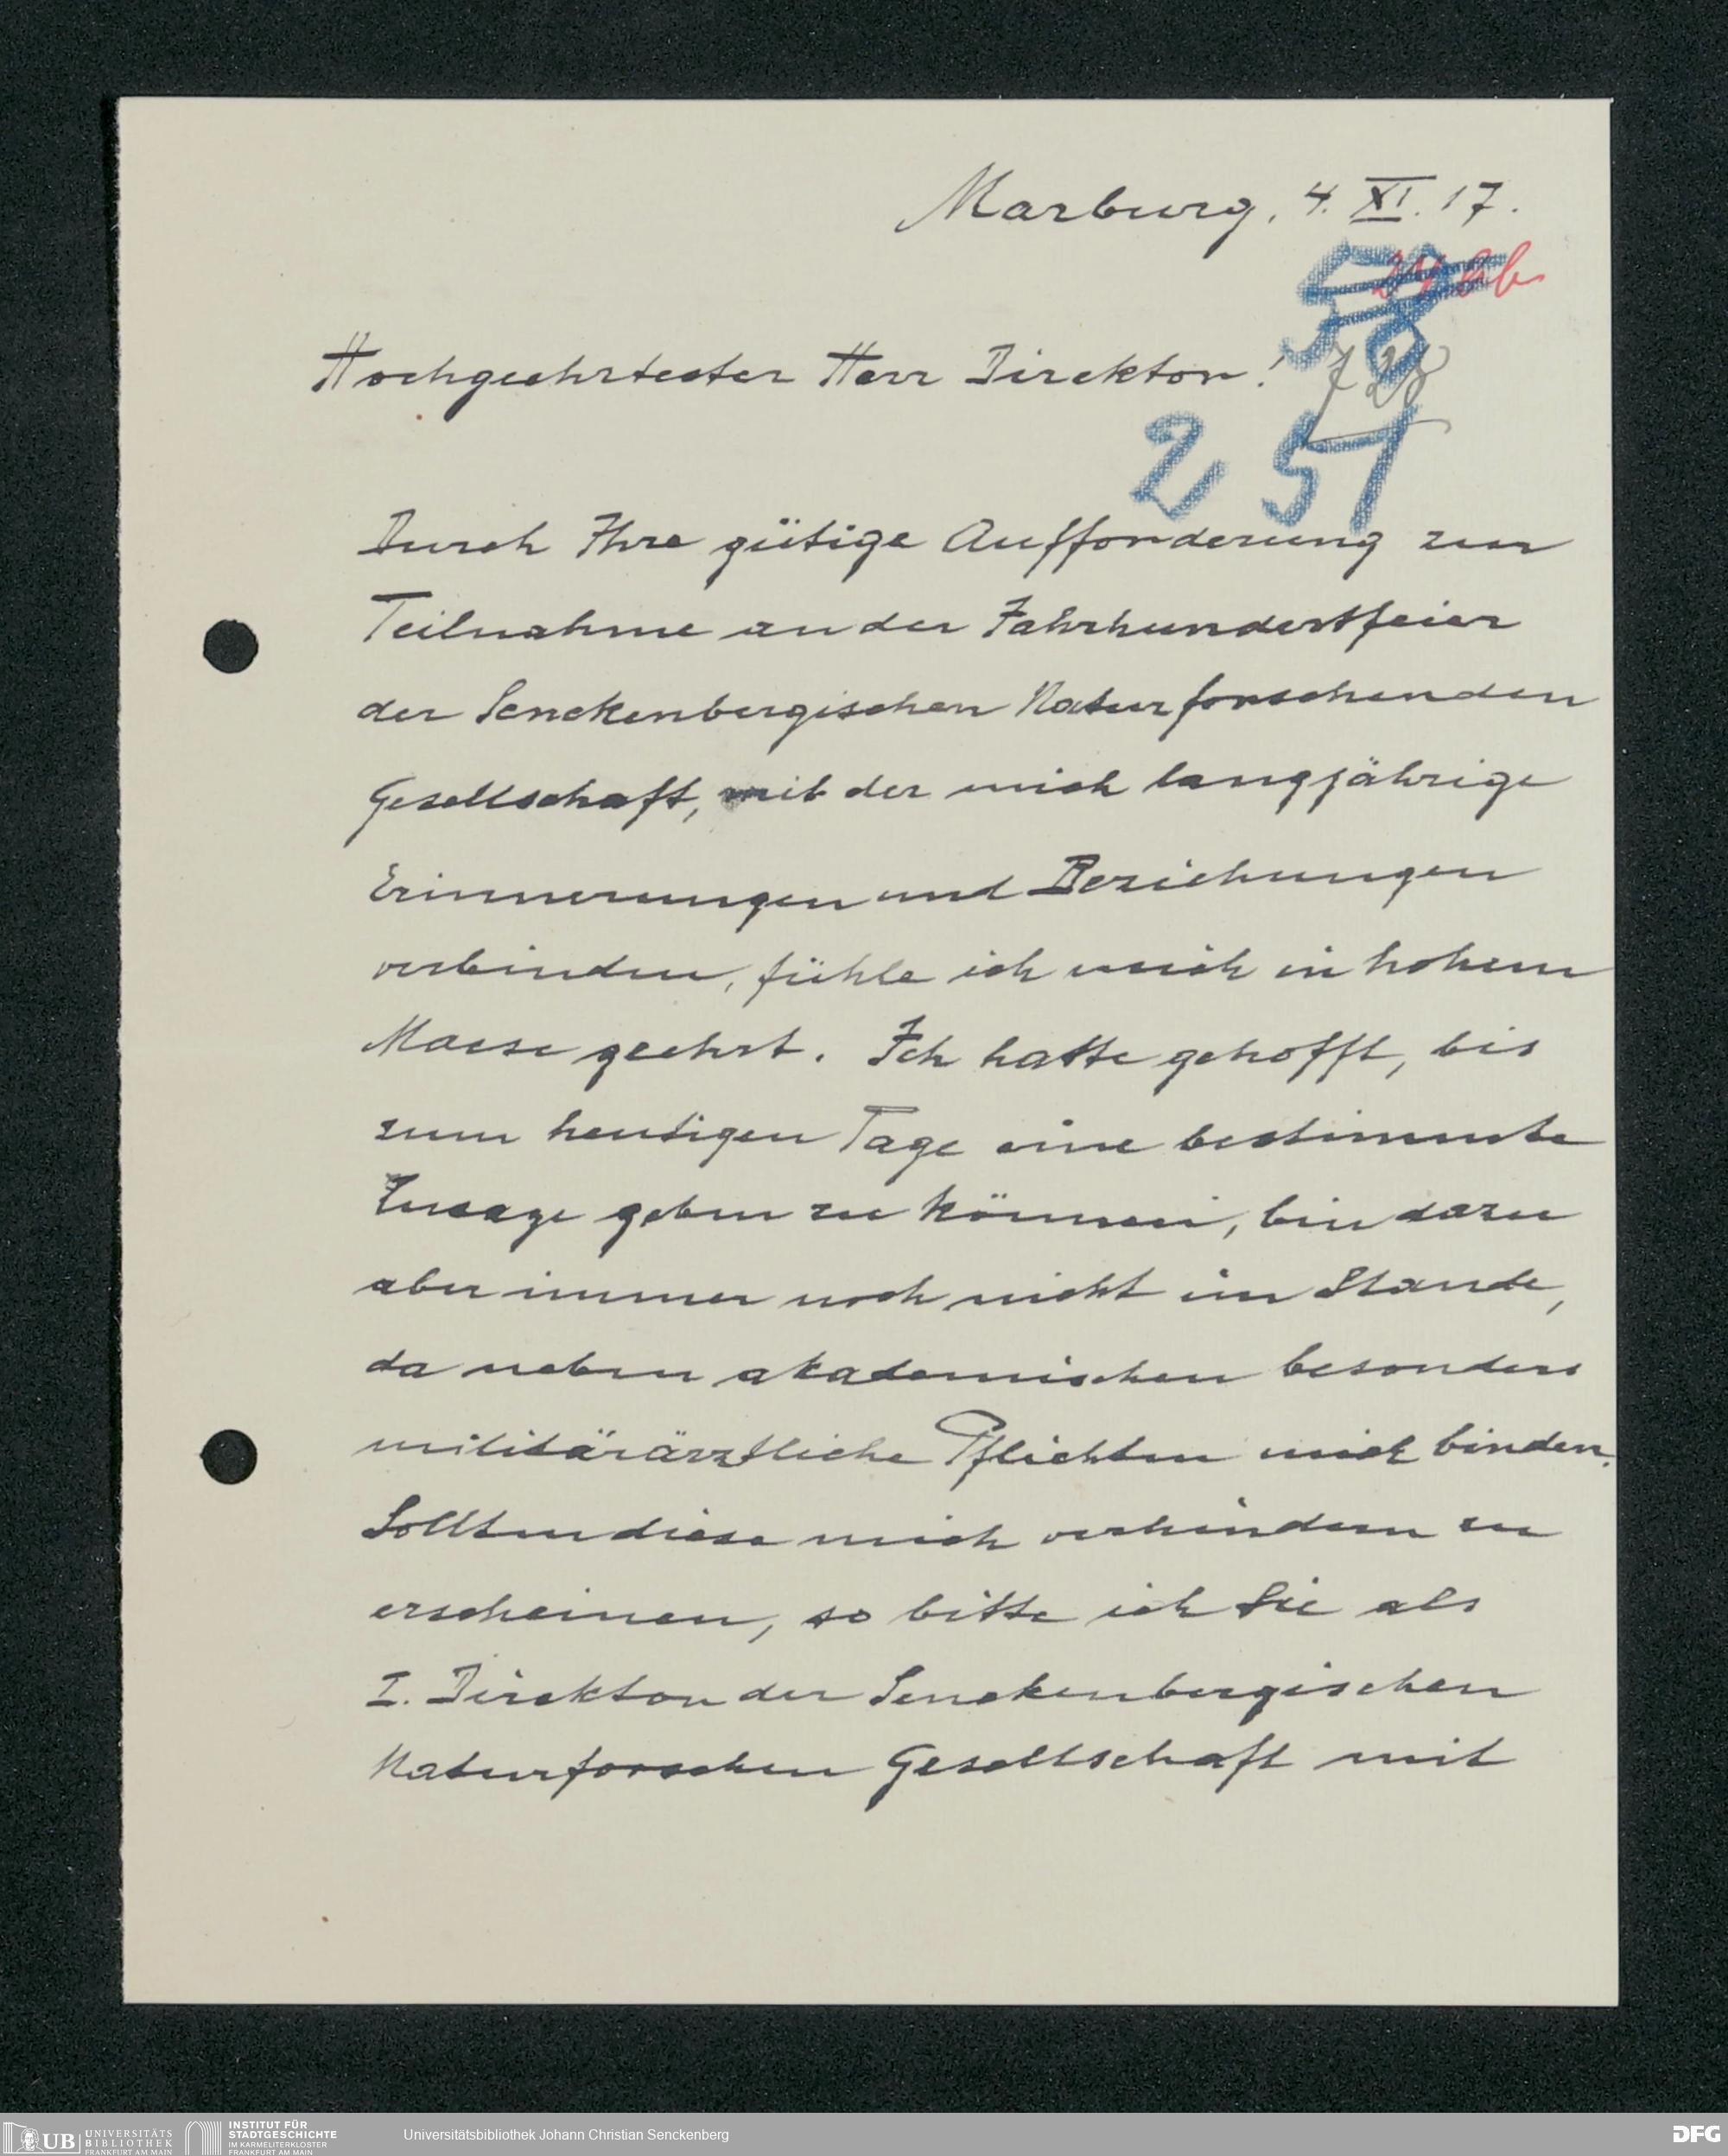 Marburg, 4. XI. 17.
58
Hochgeehrtester Herr Direktor!
251
Durch Ihre gütige Aufforderung zur
Teilnahme an der Jahrhundertfeier
der Senckenbergischen Naturforschenden
Gesellschaft, mit der mich langjährige
Erinnerungen und Beziehungen
verbinden, fühle ich mich in hohem
Maese geehrt. Ich hatte gehofft, bis
zum heutigen Tage eine bestimmte
Zusage geben zu können, bin dazu
aber immer noch nicht im Stande,
da neben akademischen besonders
militärärztliche Pflichten mich binden.
Sollten diese mich verhindern zu
erscheinen, so bitte ich Sie als
I. Direktor der Senckenbergischen
Naturforschen Gesellschaft mit
UB UNIVERSITÄTS
BIBLIOTHEK
FRANKFURT AM MAIN
INSTITUT FÜR
STADTGESCHICHTE
IM KARMELITERKLOSTER
FRANKFURT AM MAIN
Universitätsbibliothek Johann Christian Senckenberg
DFG